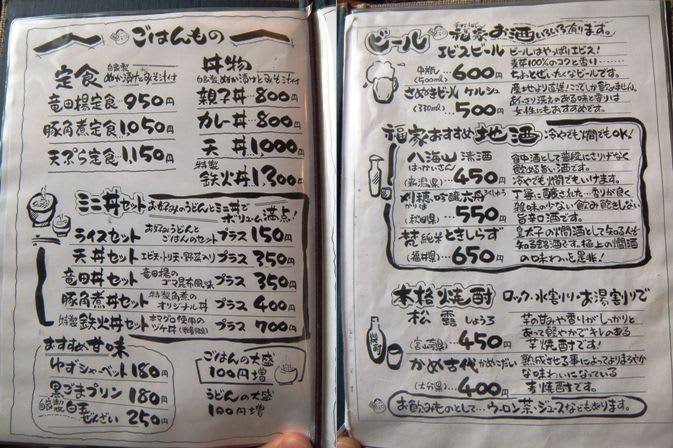 ごはんもの
定食
自家製
ぬか漬けとみそ汁付
竜田揚定食…950円
豚角煮定食 1,050円
天ぷら定食…1,150円
丼物
自家製ぬか漬けとみそ汁付
親子丼…800円
カレー丼…800円
天丼…1,000円
特製
鉄火丼…1,300円
ミニ丼セット お好みのうどんとミニ丼で
ボリューム満点!
ライスセット お好みうどんと
ごはんのセット プラス 150円
天丼セット エビ・トリ天・野菜入り プラス 350円
竜田丼セット 竜田揚の
ゴマ昆布風味 プラス 350円
豚角煮丼セット 特製角煮の
オリジナル丼 プラス 400円
特製 鉄火丼セット 本マグロ使用の
ヅケ丼 プラス 700円
おすすめ甘味
ゆずシャーベット 180円
黒ごまプリン 180円
自家製 白玉ぜんざい 250円
ごはんの大盛
100円増
うどんの大盛
100円増
ビール
福家 お酒 いろいろ有ります。
ヱビスビール
中瓶 (500ml) …600円
ビールはやっぱりエビス!
麦芽100%のコクと香い……
ちょっとぜいたくなビールです。
さぬきビール ケルシュ
(330ml) …500円
産地より直送!ここでしか飲めません。
あっさり渓谷のある味と香りは
女性にもおすすめです。
福家おすすめ 地酒 冷やでも燗でもOK!
八海山 清酒
はっかいさん
(新潟県) 450円
食中酒として普段にさりげなく
飲める旨い酒です。
冷やでも燗でもいけます。
刈穂 吟醸 六舟
かりほ ろくしゅう
(秋田県) 550円
丁寧に醸された…香りが良く
雑味の少ない飲み飽きしない
旨辛口酒です。
梵 純米 ときしらず
(福井県) …650円
皇太子の燗酒として知る人ぞ
知る銘酒です。極上の燗酒
の味わいを是非!
本格焼酎 ロック・水割り・お湯割りで
松露 しょうろ
(宮崎県) …450円
芋の甘みや香りがしっかりと
あって軽やかでキレのある
芋焼酎です!
かめ古代 かめこだい
(大分県) …400円
熟成させる事によってよりまろやか
な味わいになっている
麦焼酎です。
お飲みものとして…ウーロン茶・ジュースなどもあります。